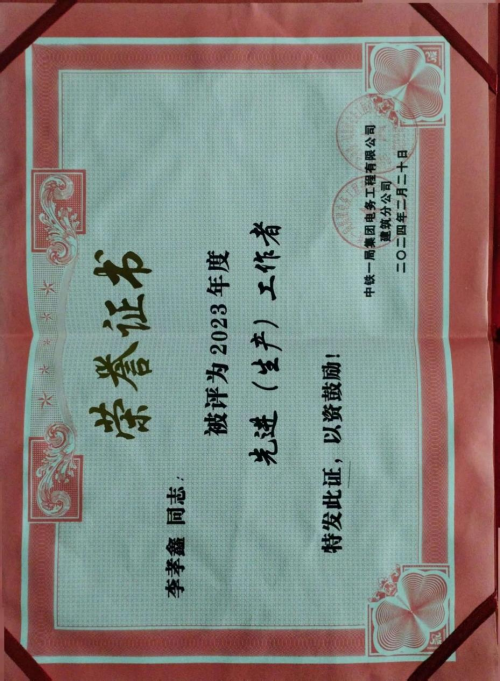 荣誉证书
李孝鑫 同志：
被评为2023年度
先进（生产）工作者
特发此证，以资鼓励！
中铁一局集团电务工程有限公司
建筑分公司
二〇二四年二月二十日